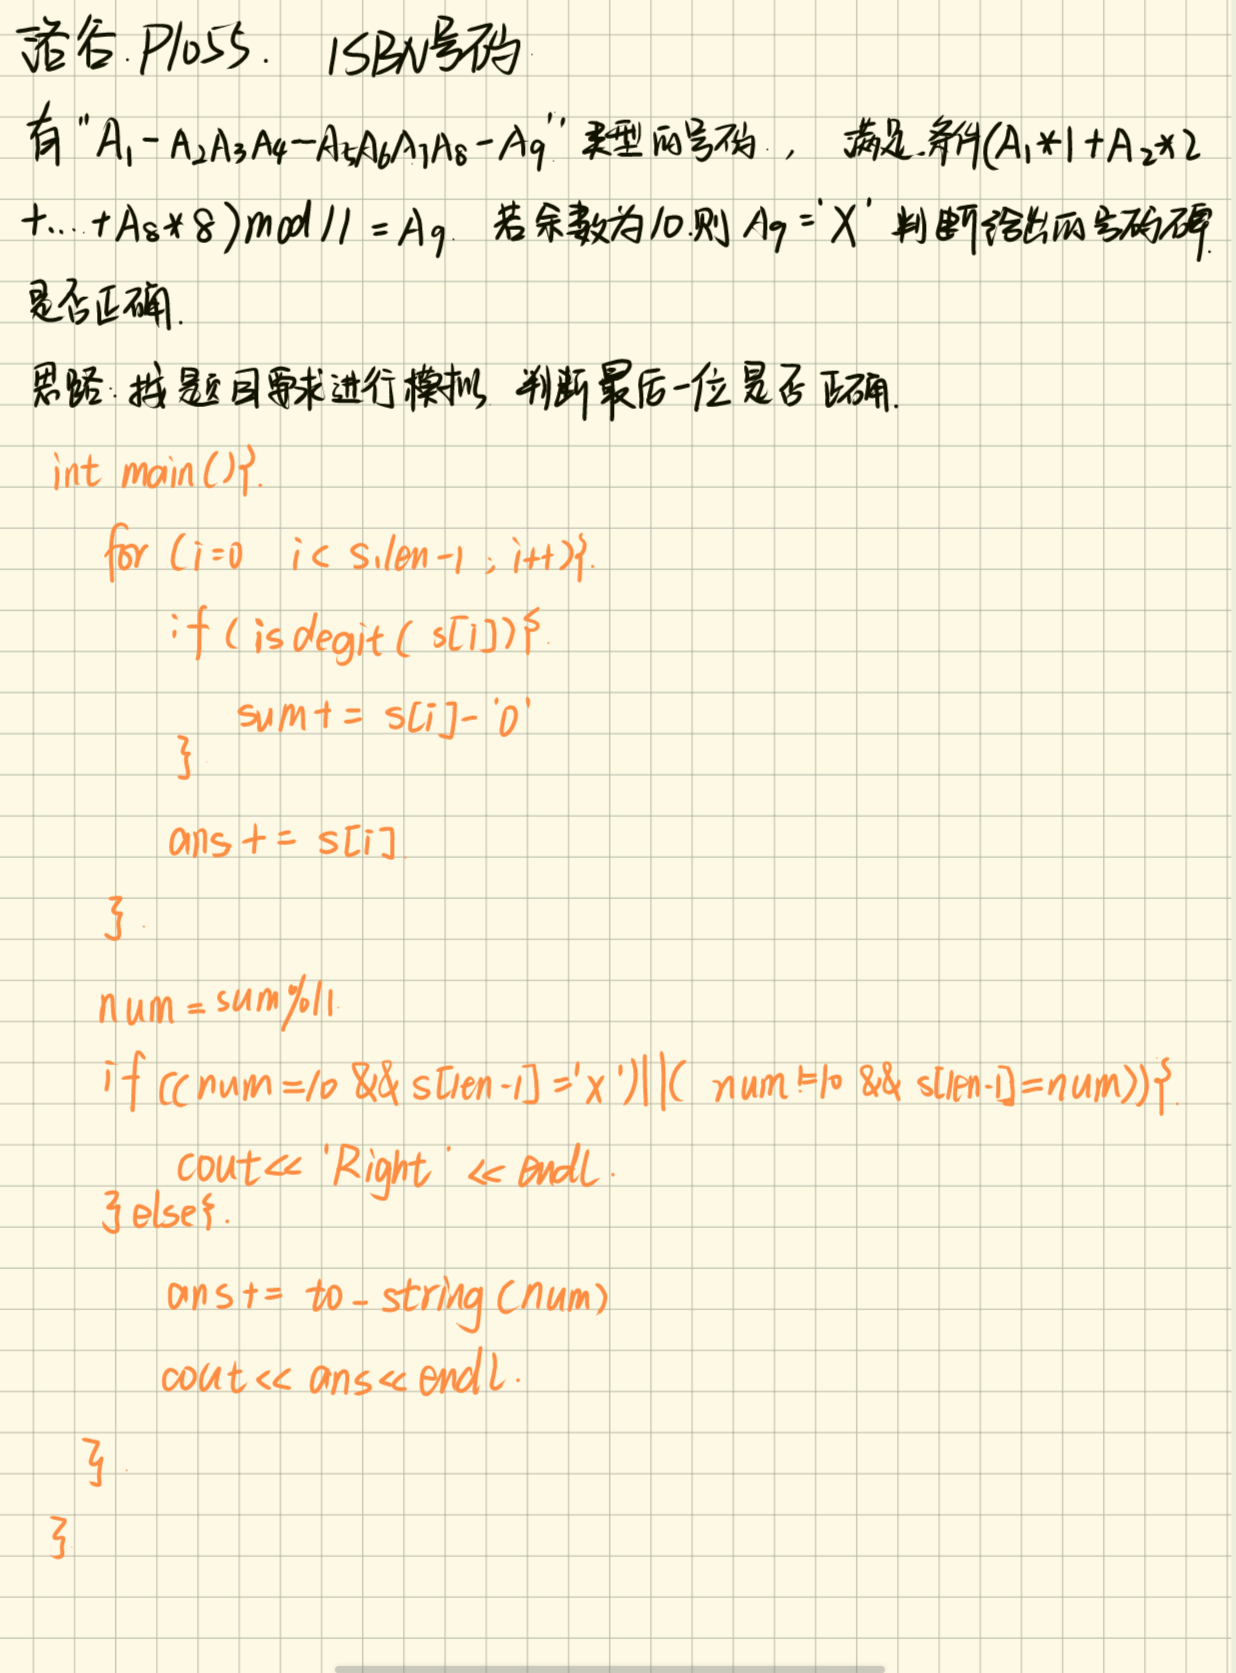 洛谷.P1055. ISBN号码
有"A₁-A₂A₃A₄-A₅A₆A₇A₈-A₉"类型的号码., 满足.条件(A₁*1+A₂*2
+...+A₈*8)mod 11 = A₉. 若余数为10.则 A₉='X' 判断给出的号码
是否正确.
思路:按题目要求进行模拟, 判断最后一位是否正确.
int main(){.
for (i=0 i< s.len-1 ; i++){.
if ( isdegit( s[i]){.
sum+= s[i]-'0'
}
ans+= s[i]
}.
num = sum%11.
if ((num=10 && s[len-1]='X')||( num!=10 && s[len-1]=num)){.
cout<< 'Right' << endl.
}else{.
ans+= to_string(num)
cout<< ans<< endl.
}.
}